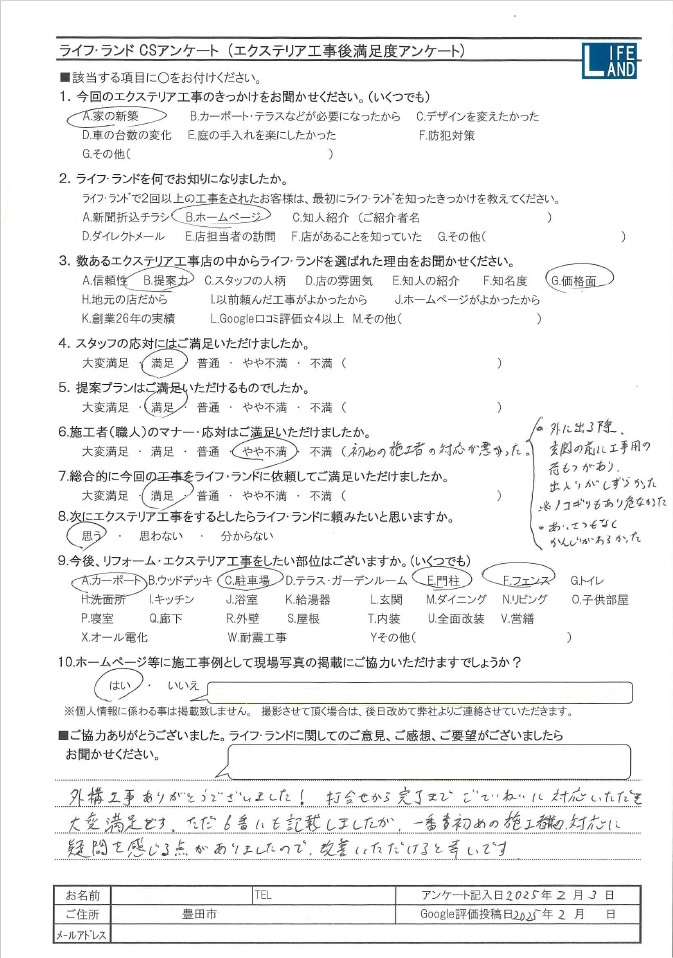 ライフ・ランド CSアンケート（エクステリア工事後満足度アンケート）
LIFE LAND
■該当する項目に〇をお付けください。
1. 今回のエクステリア工事のきっかけをお聞かせください。（いくつでも）
A.家の新築 B.カーポート・テラスなどが必要になったから C.デザインを変えたかった
D.車の台数の変化 E.庭の手入れを楽にしたかった F.防犯対策
G.その他( )
2. ライフ・ランドを何でお知りになりましたか。
ライフ・ランドで2回以上の工事をされたお客様は、最初にライフ・ランドを知ったきっかけを教えてください。
A.新聞折込チラシ B.ホームページ C.知人紹介（ご紹介者名 ）
D.ダイレクトメール E.店担当者の訪問 F.店があることを知っていた G.その他( )
3. 数あるエクステリア工事店の中からライフ・ランドを選ばれた理由をお聞かせください。
A.信頼性 B.提案力 C.スタッフの人柄 D.店の雰囲気 E.知人の紹介 F.知名度 G.価格面
H.地元の店だから I.以前頼んだ工事がよかったから J.ホームページがよかったから
K.創業26年の実績 L.Google口コミ評価☆4以上 M.その他( )
4. スタッフの応対にはご満足いただけましたか。
大変満足 ・ 満足 ・ 普通 ・ やや不満 ・ 不満 ( )
5. 提案プランはご満足いただけるものでしたか。
大変満足 ・ 満足 ・ 普通 ・ やや不満 ・ 不満 ( )
6.施工者（職人）のマナー・応対はご満足いただけましたか。
大変満足 ・ 満足 ・ 普通 ・ やや不満 ・ 不満 (初めの施工者の対応が悪かった。)
・外に出る際、
玄関の前に工事用の
荷もつがあり、
出入りがしずらかった
※ノコギリもあり危なかった
・あいさつもなく
かんじがわるかった
7.総合的に今回の工事をライフ・ランドに依頼してご満足いただけましたか。
大変満足 ・ 満足 ・ 普通 ・ やや不満 ・ 不満 ( )
8.次にエクステリア工事をするとしたらライフ・ランドに頼みたいと思いますか。
思う ・ 思わない ・ 分からない
9.今後、リフォーム・エクステリア工事をしたい部位はございますか。（いくつでも）
A.カーポート B.ウッドデッキ C.駐車場 D.テラス・ガーデンルーム E.門柱 F.フェンス G.トイレ
H.洗面所 I.キッチン J.浴室 K.給湯器 L.玄関 M.ダイニング N.リビング O.子供部屋
P.寝室 Q.廊下 R.外壁 S.屋根 T.内装 U.全面改装 V.営繕
X.オール電化 W.耐震工事 Yその他( )
10.ホームページ等に施工事例として現場写真の掲載にご協力いただけますでしょうか？
はい ・ いいえ
※個人情報に係わる事は掲載致しません。 撮影させて頂く場合は、後日改めて弊社よりご連絡させていただきます。
■ご協力ありがとうございました。ライフ・ランドに関してのご意見、ご感想、ご要望がございましたら
お聞かせください。
外構工事ありがとうございました！ 打合せから完了まで ごていねいに対応いただき
大変満足です。ただ6番にも記載しましたが、一番初めの施工者様の対応に
疑問を感じる点がありましたので、改善いただけると幸いです。
お名前 TEL アンケート記入日2025年2月3日
ご住所 豊田市 Google評価投稿日2025年2月 日
メールアドレス